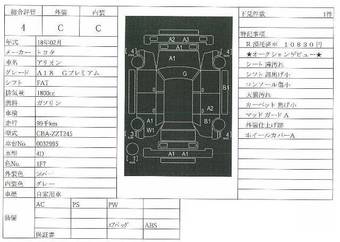 総合評価 外装 内装
4 C C
年式 18年02月
メーカー トヨタ
車名 アリオン
グレード A18 Gプレミアム
シフト FAT
排気量 1800cc
燃料 ガソリン
車検
走行 89千km
型式 CBA-ZZT245
車台No 0032995
車型 4D
色No 1F7
外装色 シルバー
内装色 グレー
車歴 自家用車
装備 AC PS PW
エアバッグ ABS
保証書
A2 A3
A1
G
A1
A1
B1
W1
A1
A1
下見件数 1件
特記事項
R済預託金 10830円
★オークションゲビュー★
シート薄汚れ
シフト部焦げ小
コンソール傷小
天張り汚れ
カーペット焦げ小
マッドガードA
外装仕上げ跡
ホイールカバーA